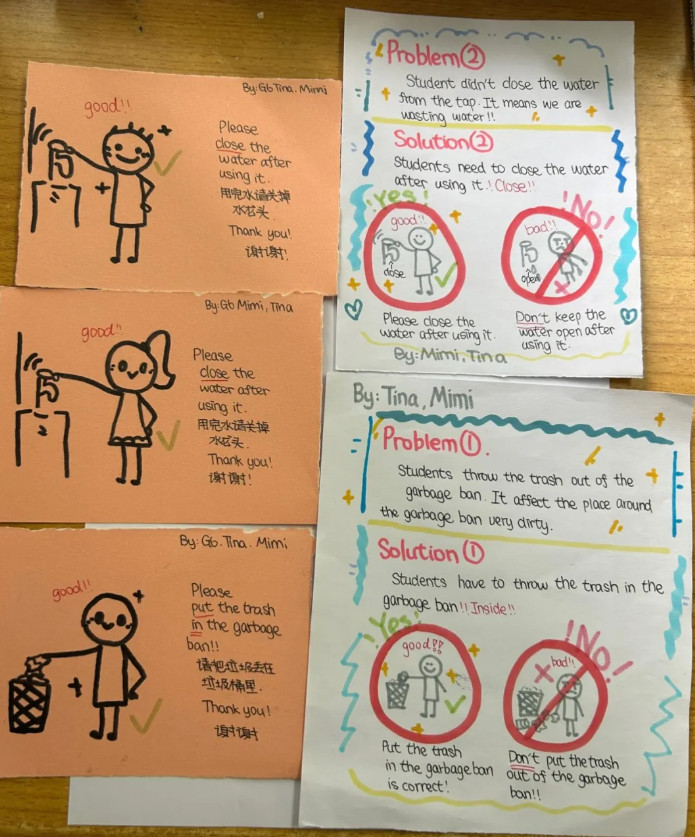 By: G6 Tina. Mimi
good!!
Please
close the
water after
using it.
用完水请关掉
水龙头.
Thank you!
谢谢!
By: G6 Mimi, Tina
good!!
Please
close the
water after
using it.
用完水请关掉
水龙头.
Thank you!
谢谢!
By: G6. Tina. Mimi
good!!
Please
put the trash
in the garbage
ban!!
请把垃圾丢在
垃圾桶里.
Thank you!
谢谢
Problem②
Student didn't close the water
from the tap. It means we are
wasting water!!
Solution②
Students need to close the water
after using it.! Close!!
Yes!
good!!
close
Please close the
water after using it.
!No!
bad!!
open
Don't keep the
water open after
using it.
By: Mimi, Tina
By: Tina, Mimi
Problem①.
Students throw the trash out of the
garbage ban. It affect the place around
the garbage ban very dirty.
Solution①
Students have to throw the trash in the
garbage ban!! Inside!!
Yes!
good!!
Put the trash
in the garbage ban
is correct!
!No!
bad!!
Don't put the trash
out of the garbage
ban!!